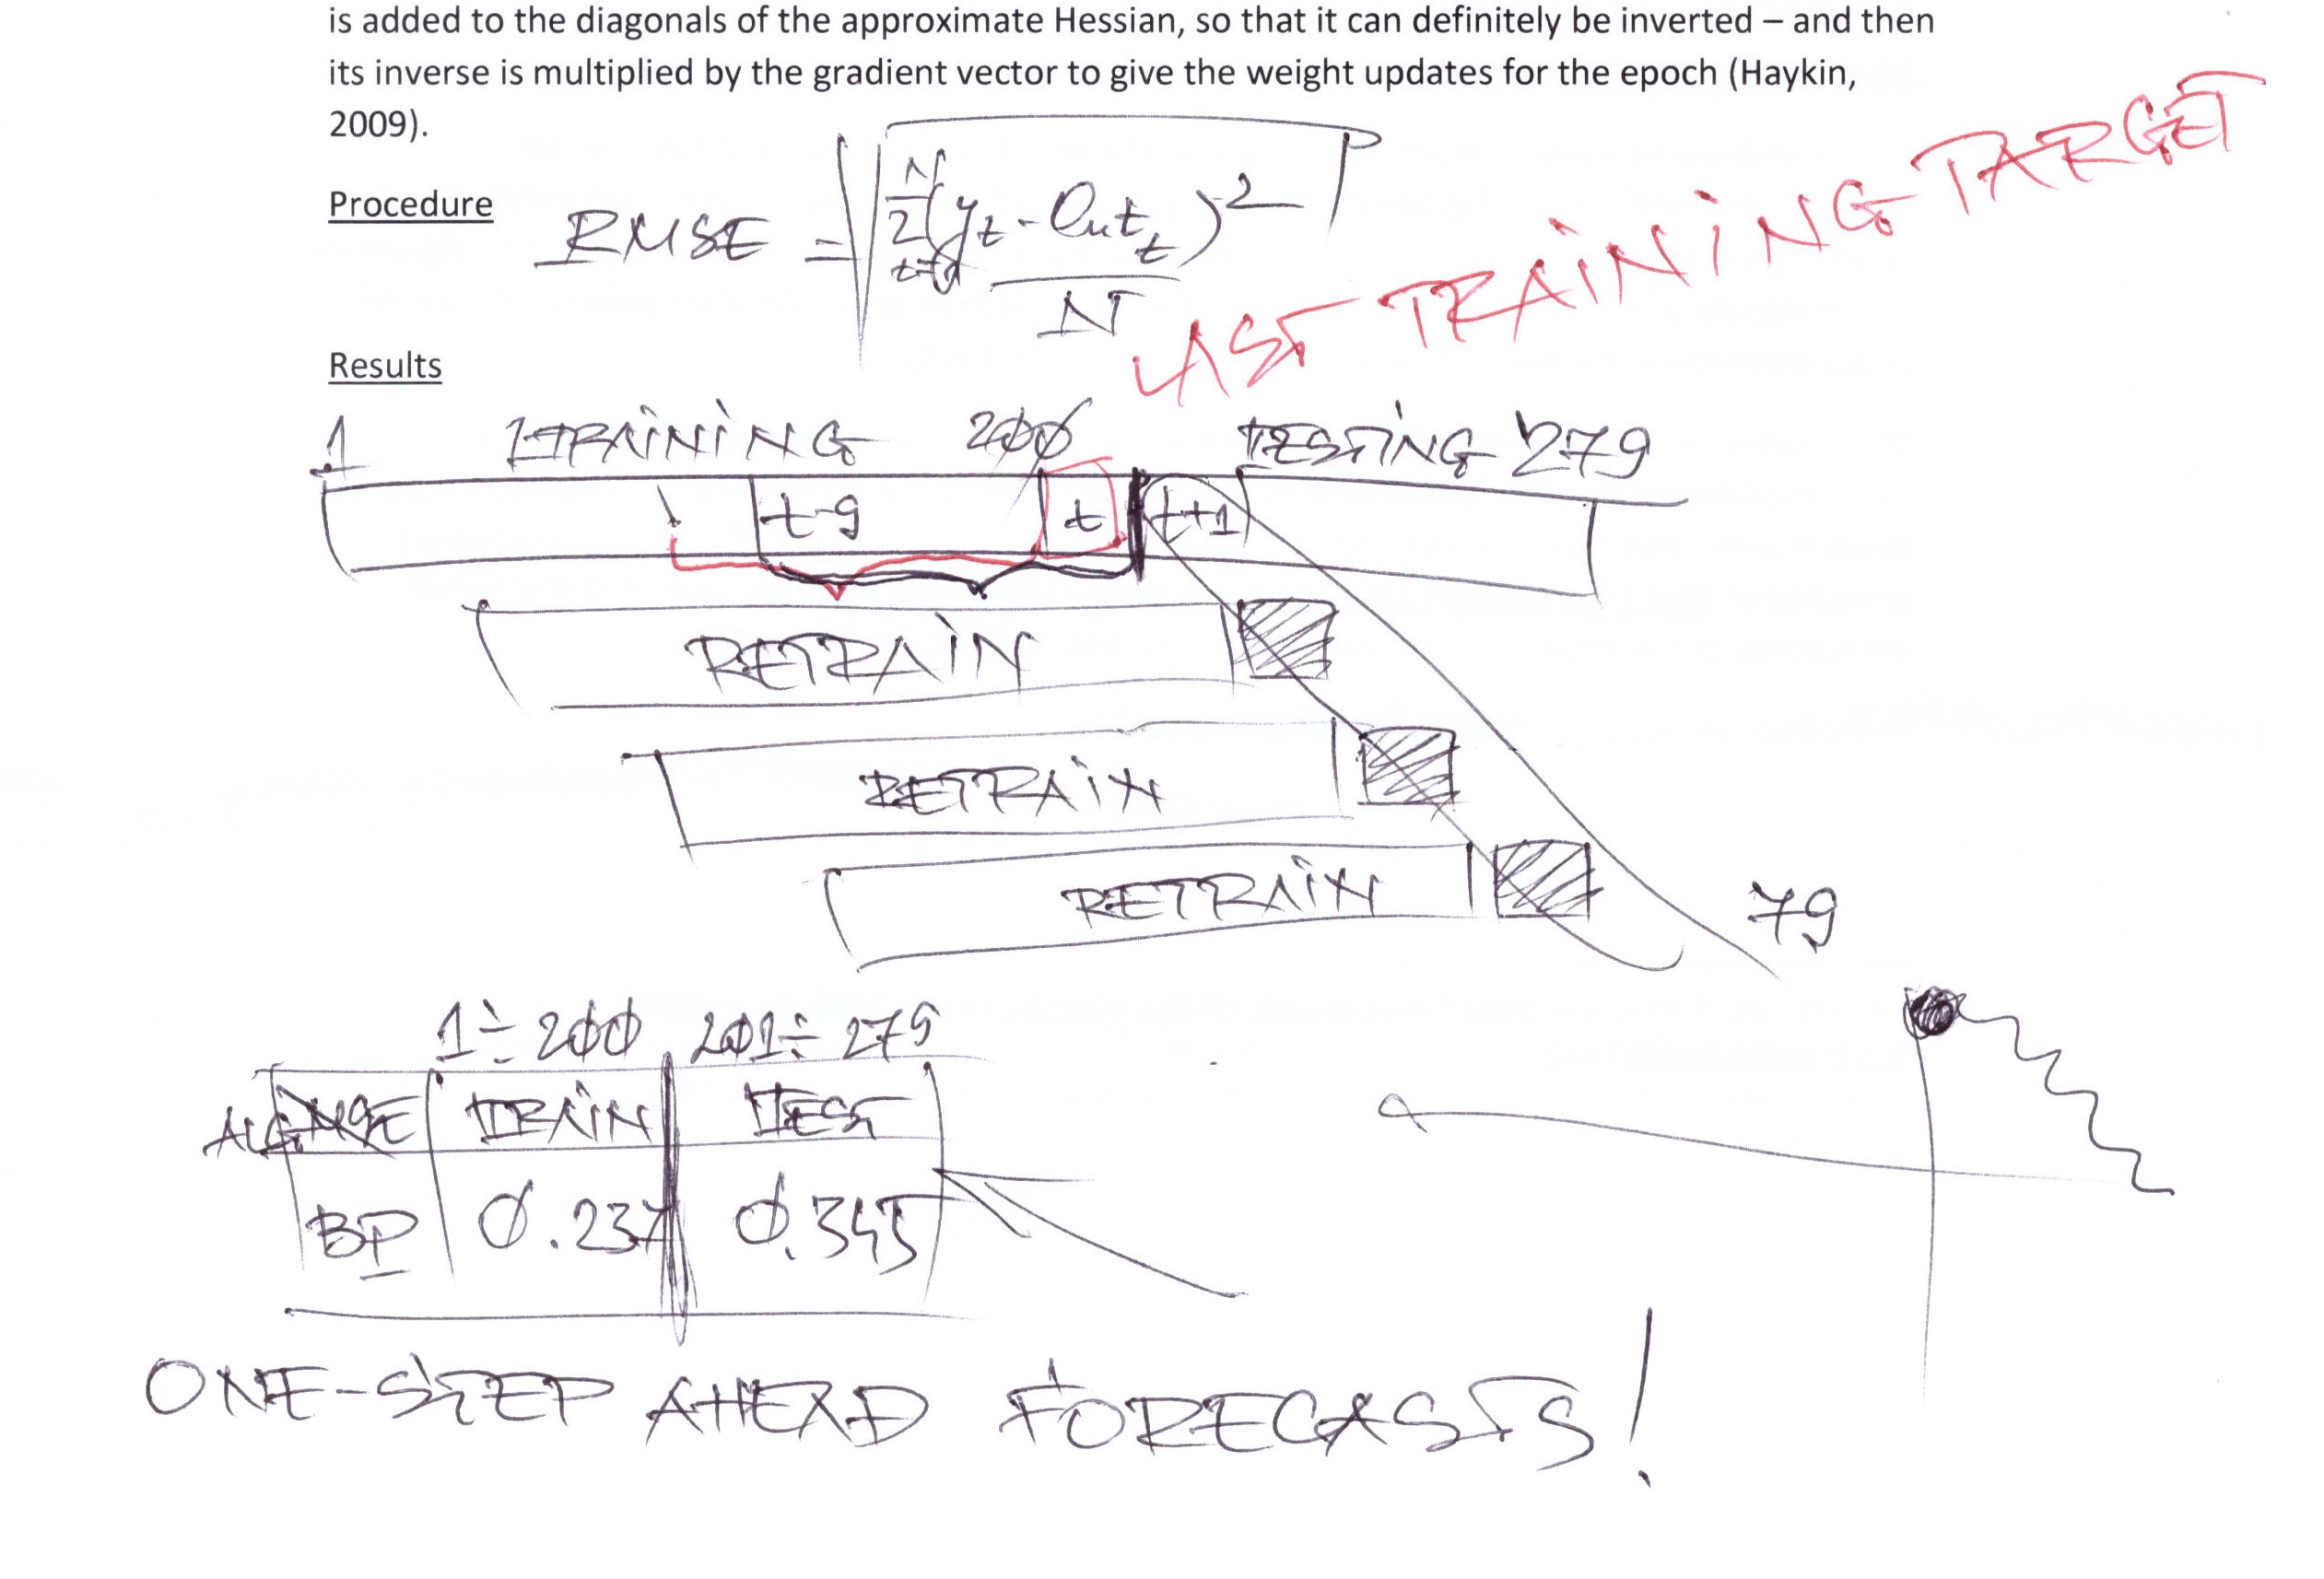 is added to the diagonals of the approximate Hessian, so that it can definitely be inverted – and then
its inverse is multiplied by the gradient vector to give the weight updates for the epoch (Haykin,
2009).
Procedure
RMSE = √ N Σ t=1 (yt - Outt)² / N
LAST TRAINING TARGET
Results
1 TRAINING 200 TESTING 279
t-9 t t+1
RETRAIN
RETRAIN
RETRAIN
79
1÷200 201÷279
ALG TRAIN TEST
BP 0.237 0.345
ONE-STEP AHEAD FORECASTS!